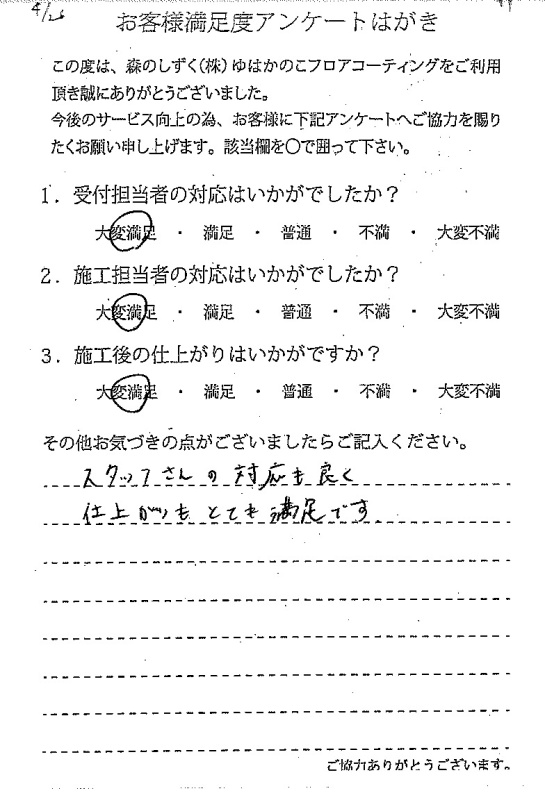 4/26
お客様満足度アンケートはがき
この度は、森のしずく(株)ゆはかのこフロアコーティングをご利用
頂き誠にありがとうございました。
今後のサービス向上の為、お客様に下記アンケートへご協力を賜り
たくお願い申し上げます。該当欄を〇で囲って下さい。
1．受付担当者の対応はいかがでしたか？
大変満足 ・ 満足 ・ 普通 ・ 不満 ・ 大変不満
2．施工担当者の対応はいかがでしたか？
大変満足 ・ 満足 ・ 普通 ・ 不満 ・ 大変不満
3．施工後の仕上がりはいかがですか？
大変満足 ・ 満足 ・ 普通 ・ 不満 ・ 大変不満
その他お気づきの点がございましたらご記入ください。
スタッフさんの対応も良く
仕上がりもとても満足です
ご協力ありがとうございます。